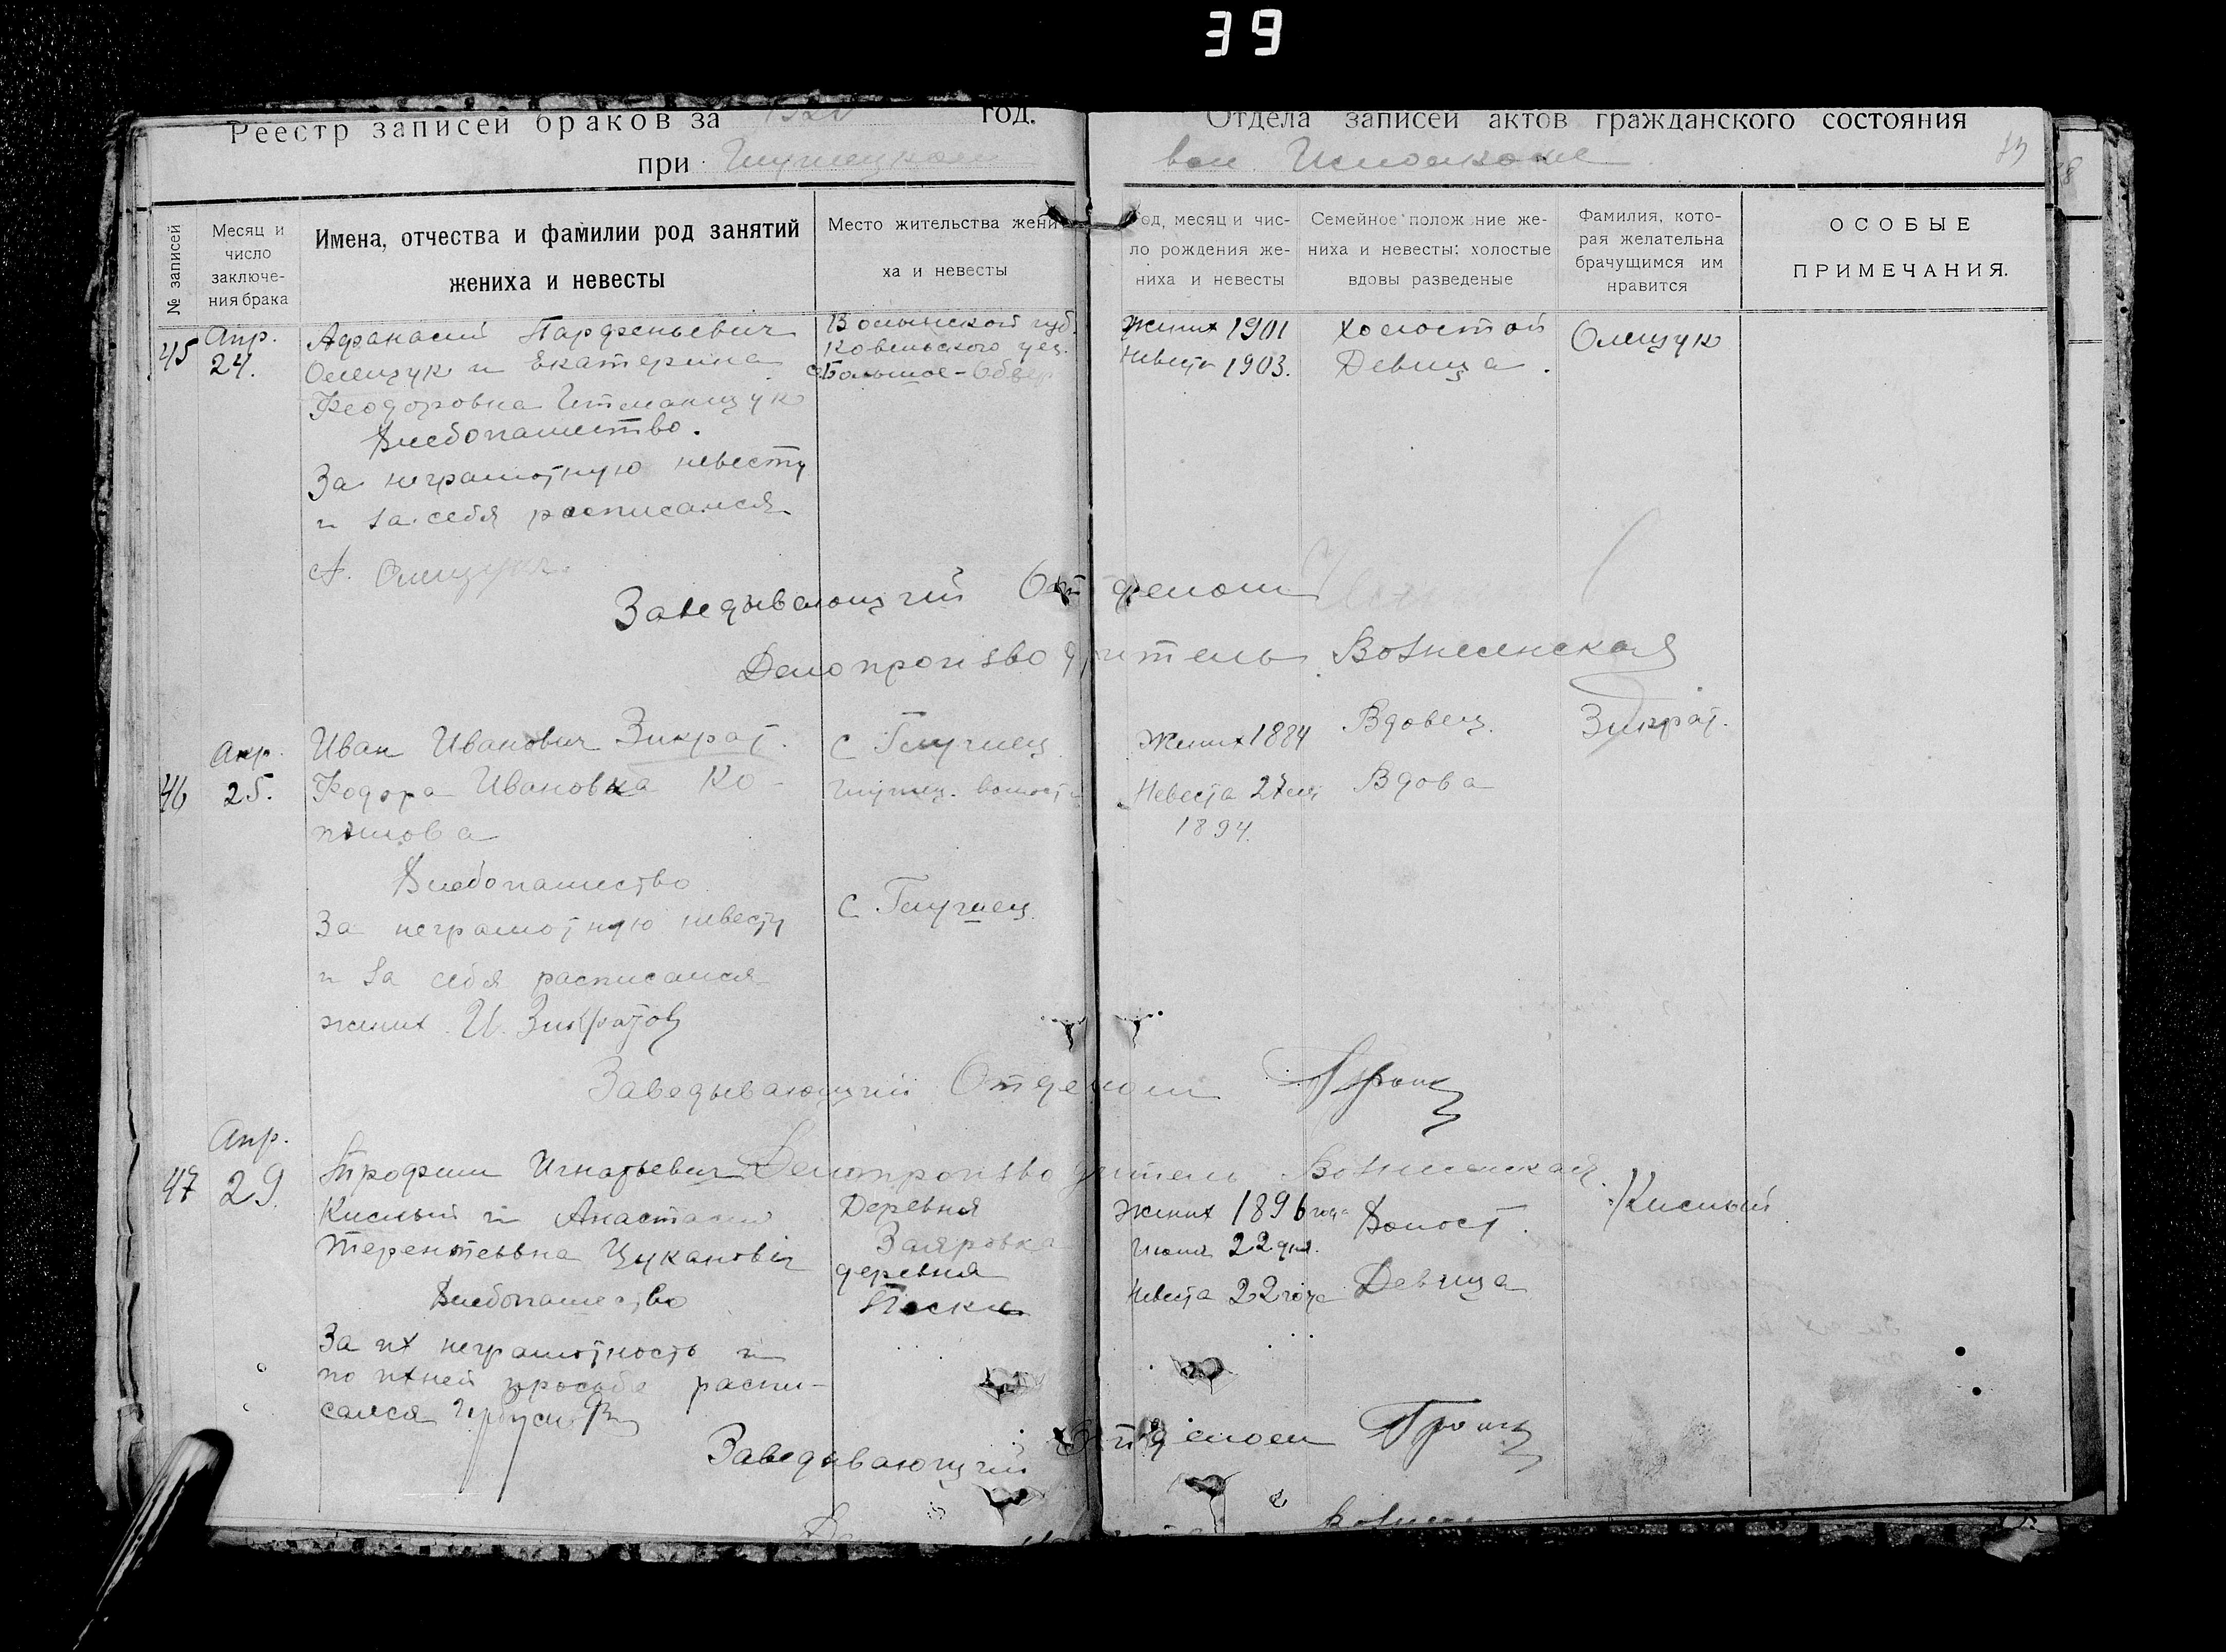 39
Реестр записей браков за 1920 год.
Отдела записей актов гражданского состояния
при Глушецком
вол. Исполкоме
№ записей
Месяц и число заключения брака
Имена, отчества и фамилии род занятий
жениха и невесты
Место жительства жени
ха и невесты
од, месяц и чис-
ло рождения же-
ниха и невесты
Семейное положение же-
ниха и невесты: холостые
вдовы разведеные
Фамилия, кото-
рая желательна
брачущимся им
нравится
ОСОБЫЕ
ПРИМЕЧАНИЯ.
45
Апр.
24.
Афанасий Парфеньевич
Олещук и Екатерина
Феодоровна
Хлебопашество.
За неграмотную невесту
и за себя расписался
А. Олещук.
Волынской губ.
Ковельского уез.
с. Большое-Обзыр
Жених 1901
Невеста 1903.
Холостой
Девица.
Олещук
Заведывающий Отделом
Делопроизводитель Вознесенская
46
Апр.
25.
Иван Иванович Зикрат.
Федора Ивановна Ко-
пылова
Хлебопашество
За неграмотную невесту
и за себя расписался
жених И. Зикратов
с Глушец
Глушец. волости
с. Глушец
Жених 1884
Невеста 27 лет
1894.
Вдовец.
Вдова
Зикрат.
Заведывающий Отделом
Делопроизводитель Вознесенская
47
Апр.
29.
Трофим Игнатьевич
Кислый и Анастасия
Терентьевна Цуканова
Хлебопашество
За их неграмотность и
по ихней просьбе распи-
сался
Деревня
Заяровка
деревня
Пески
Жених 1896 года
Июня 22 дня.
Невеста 22 года
Холост.
Девица
Кислый
Заведывающий Отделом